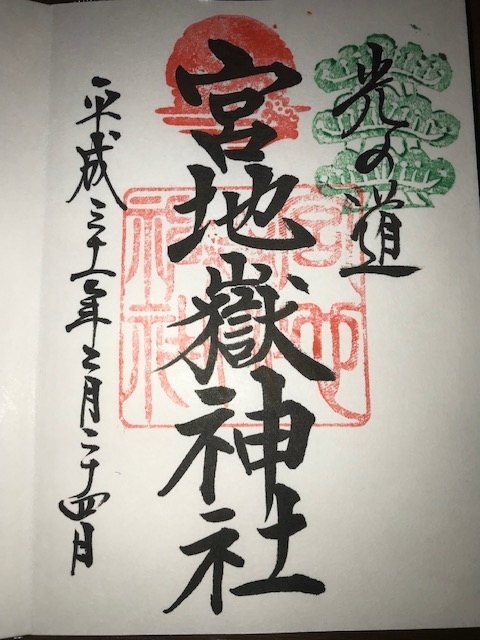 光の道
宮地嶽神社
平成三十一年二月二十四日